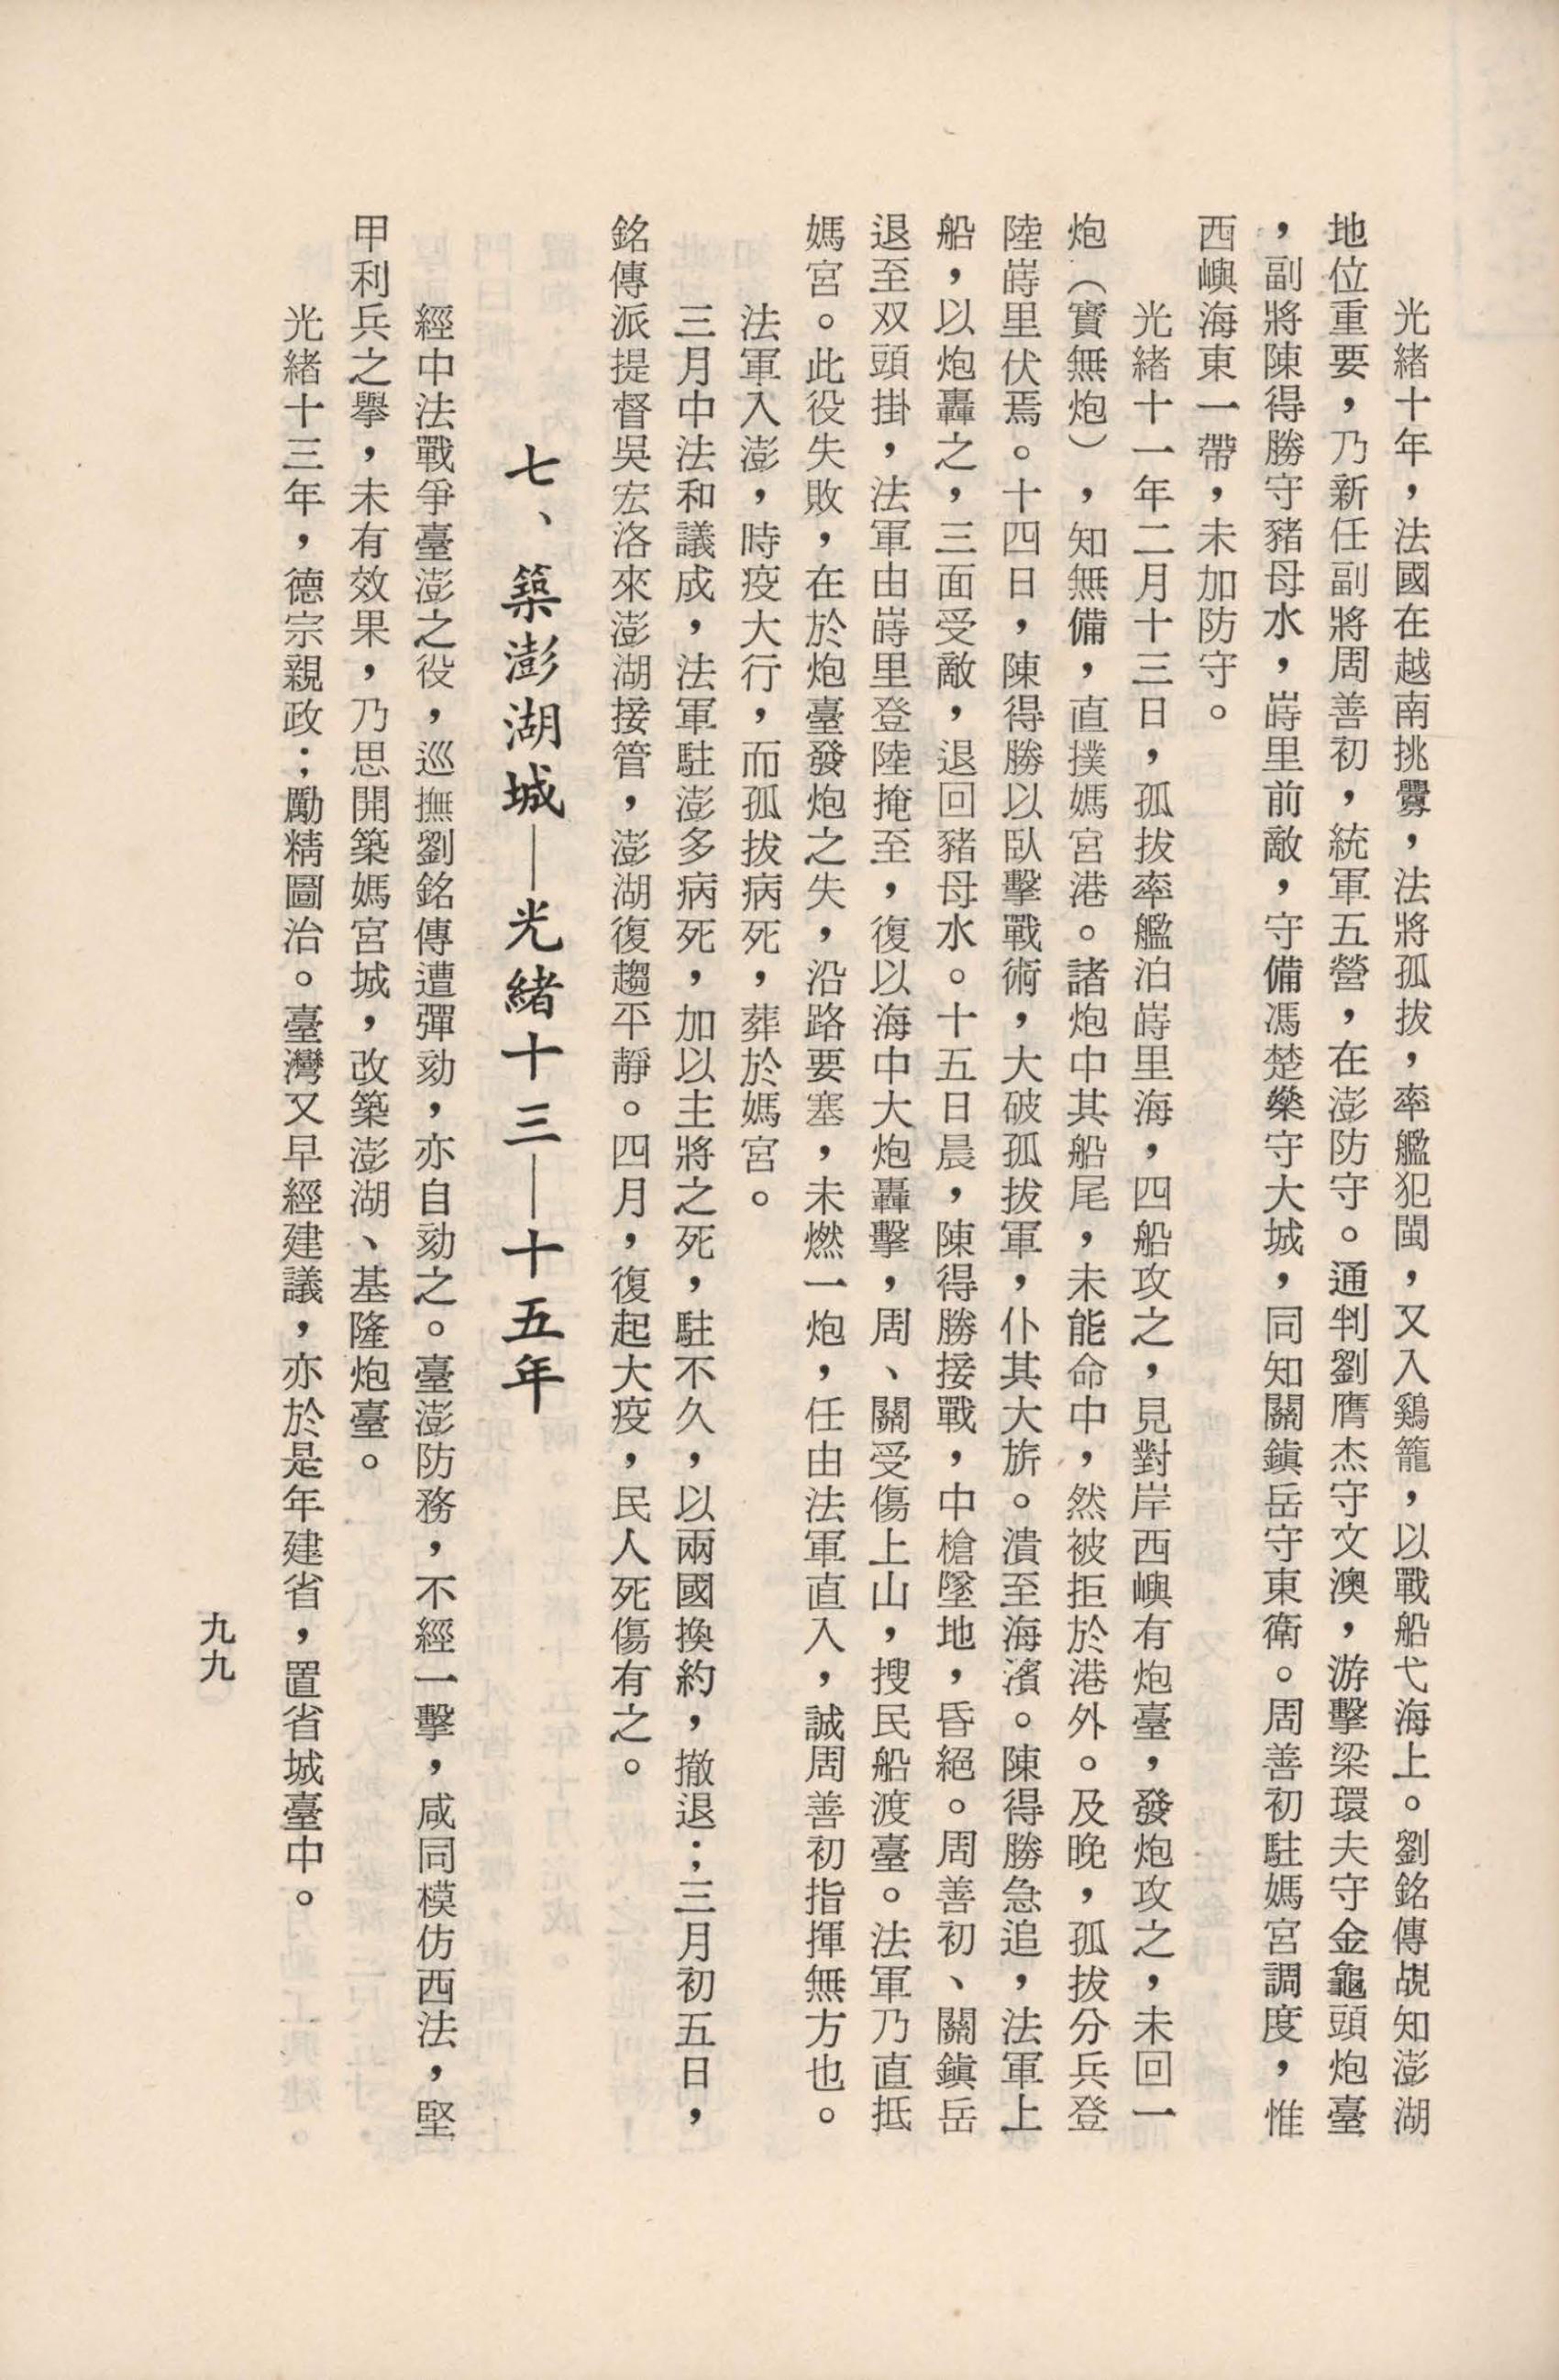 光緒十年，法國在越南挑釁，法將孤拔，率艦犯閩，又入鷄籠，以戰船弋海上。劉銘傳覘知澎湖
地位重要，乃新任副將周善初，統軍五營，在澎防守。通判劉膺杰守文澳，游擊梁環夫守金龜頭炮臺
，副將陳得勝守豬母水，嵵里前敵，守備馮楚燊守大城，同知關鎮岳守東衛。周善初駐媽宮調度，惟
西嶼海東一帶，未加防守。
光緒十一年二月十三日，孤拔率艦泊嵵里海，四船攻之，見對岸西嶼有炮臺，發炮攻之，未回一
炮（實無炮），知無備，直撲媽宮港。諸炮中其船尾，未能命中，然被拒於港外。及晚，孤拔分兵登
陸嵵里伏焉。十四日，陳得勝以臥擊戰術，大破孤拔軍，仆其大旂。潰至海濱。陳得勝急追，法軍上
船，以炮轟之，三面受敵，退回豬母水。十五日晨，陳得勝接戰，中槍墜地，昏絕。周善初、關鎮岳
退至双頭掛，法軍由嵵里登陸掩至，復以海中大炮轟擊，周、關受傷上山，搜民船渡臺。法軍乃直抵
媽宮。此役失敗，在於炮臺發炮之失，沿路要塞，未燃一炮，任由法軍直入，誠周善初指揮無方也。
法軍入澎，時疫大行，而孤拔病死，葬於媽宮。
三月中法和議成，法軍駐澎多病死，加以主將之死，駐不久，以兩國換約，撤退；三月初五日，
銘傳派提督吳宏洛來澎湖接管，澎湖復趨平靜。四月，復起大疫，民人死傷有之。
七、築澎湖城—光緒十三—十五年
經中法戰爭臺澎之役，巡撫劉銘傳遭彈劾，亦自劾之。臺澎防務，不經一擊，咸同模仿西法，堅
甲利兵之擧，未有效果，乃思開築媽宮城，改築澎湖、基隆炮臺。
光緒十三年，德宗親政；勵精圖治。臺灣又早經建議，亦於是年建省，置省城臺中。
九九